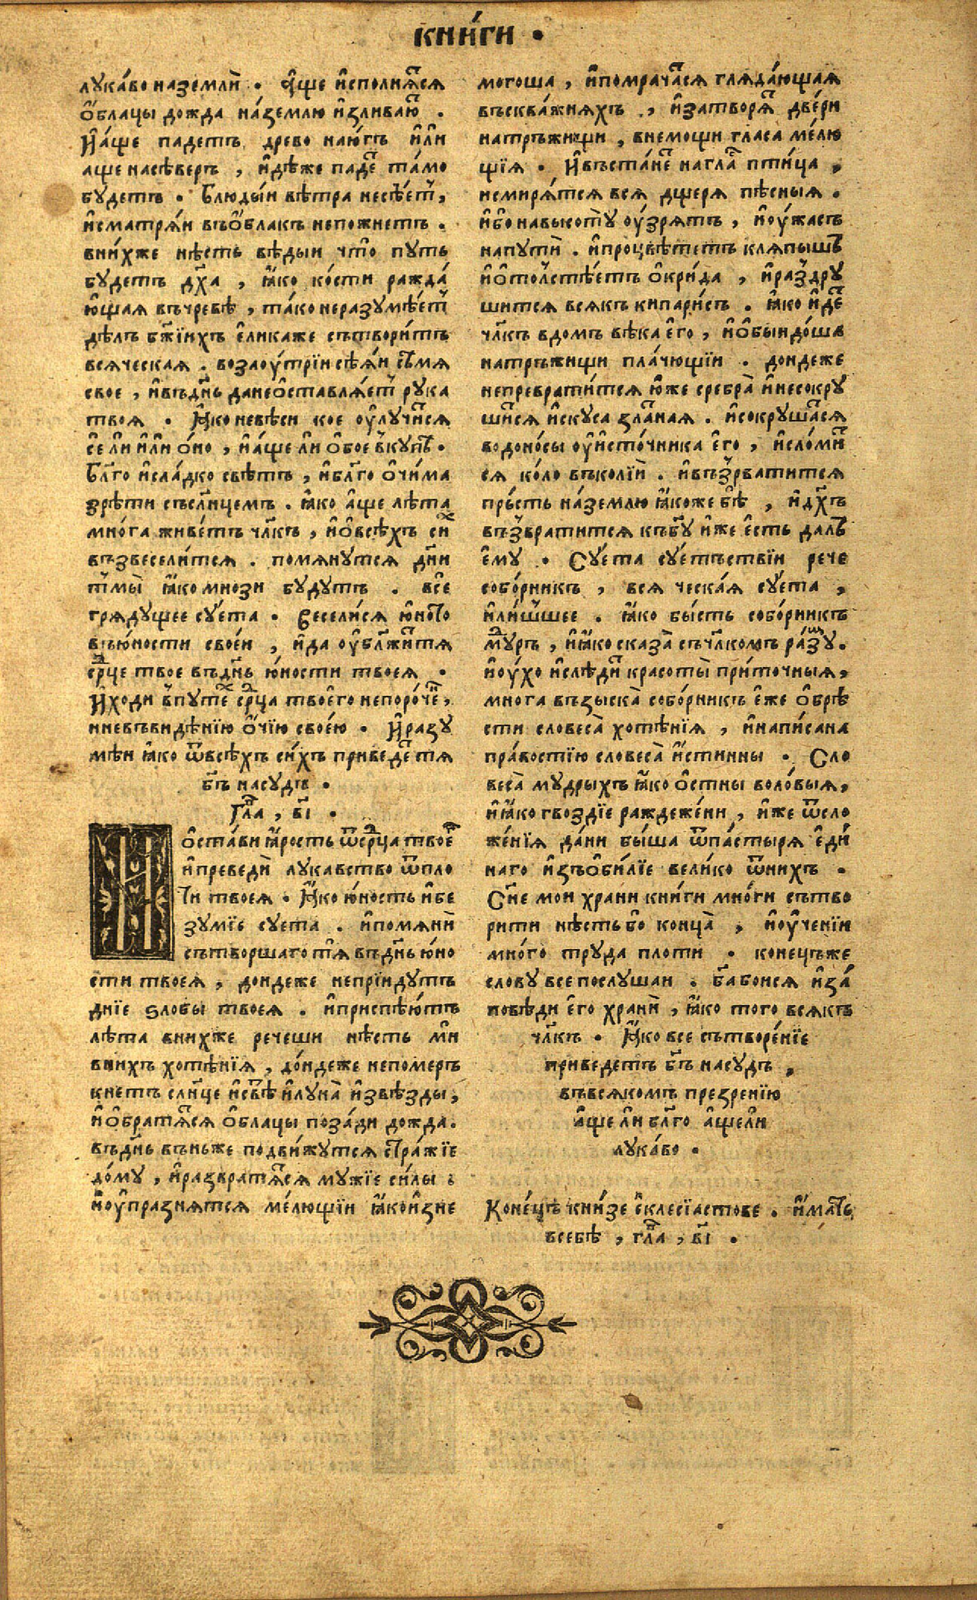 кни́ги ·
лука́во на землѝ · а҆́ще и҆сполнѧ́тсѧ
ѻ҆́блацы дождѧ̀ на́ землю и҆зливаю҆ .
И҆ а҆́ще падетъ древо на ю҆́гъ и҆́ли
аще на сѣверъ , и҆дѣже паде тамо
будетъ · Блюдыи вѣтра не сѣе́т,
и҆ сматрѧ́и въ ѻ҆́блакъ не пожнетъ .
в ни́хже нѣсть вѣдыи что̀ путь
будетъ дх҃а , ꙗ҆́ко ко́сти ражда́
ю҆щаѧ въ чревѣ , та́ко не разумѣе́т
дѣлъ бж҃їихъ е҆лика же сътвори́тъ
всѧческаѧ . во заѹтрїи сѣ́ѧи сѣ́мѧ
свое , и҆ въ дн҃ь да не ѻ҆ставлѧ́ет рука
твоѧ · Ꙗ҆́ко не вѣси кое ѹ҆лучи́сѧ
се́ ли и҆́ли ѻ҆́но , и҆ а҆́ще ли ѻ҆бое вкупѣ·
Бл҃го и҆ сла́дко свѣтъ , и҆ бл҃го ѻ҆чи́ма
зрѣти съ сл҃нцемъ . ꙗ҆́ко а҆́ще лѣта
мно́га живе́тъ чл҃къ , и҆ ѻ҆ всѣ́хъ си́х
възвесели́тсѧ . помѧнутсѧ дн҃и
тмы̀ ꙗ҆́ко мнози будутъ . все
грѧдущее сѹе́та · Весели́сѧ ю҆́ното
въ ю҆́ности свое́и , и҆ да ѹ҆блжи́т тѧ
ср҃це твое въ дн҃ь ю҆́ности твоеѧ ·
И҆ ходи в путе ср҃ца твое́го непоро́че,
и не въ видѣнїю ѻ҆́чїю свое́ю · И҆ разу
мѣи ꙗ҆́ко ѿ всѣхъ си́хъ приведе́ тѧ
бг҃ъ на судъ ·
Гла , в҃і ·
И ѻ҆ста́ви ꙗ҆́рость ѿ ср҃ца твоего
и҆ преведѝ лукавство ѿ пло
ти твоеѧ · Ꙗ҆́ко ю҆́ность и҆ бе
зумїе сѹета . и҆ помѧнѝ
сътворшаго тѧ въ дн҃ь ю҆́но
сти твоеѧ , дондеже не прїидутъ
днїе ѕлобы твоеѧ . и҆ приспѣю́тъ
лѣта в ни́хже речеши нѣсть ми
в нихъ хотѣнїѧ , до́ндеже не померъ
кнетъ сл҃нце и҆ свѣ и҆ луна̀ и҆ звѣзды,
и҆ ѻ҆братѧ́тсѧ ѻ҆́блацы поза́ди дождѧ.
въ дн҃ь въ ньже подви́жутсѧ стра́жїе
до́му , и҆ развратѧ́тсѧ мужїе си́лы :
и҆ ѹ҆празнѧтсѧ ме́лющїи ꙗ҆́ко и҆знe
могоша , и҆ помрача́тсѧ глѧда́ющаѧ
въ сква́жнѧхъ , и҆ затворѧ́т две́ри
на тръжищи , в немощи гласа ме́лю
щїѧ · И҆ въста́не на гла птица ,
и смирѧ́тсѧ всѧ дщерѧ пѣсныѧ .
и҆бо на высоту ѹ҆́зрѧтъ , и҆ ѹ҆́жасъ
на путѝ . и҆ процвѣтетъ клѧпышъ
и҆ ѻ҆толстѣетъ ѻ҆кри́да , и҆ раздру
шитсѧ всѧкъ кипари́съ . ꙗ҆́ко и҆́де
чл҃къ в домъ вѣка е҆го , и҆ ѻ҆быидо́ша
на тръжищи пла́чющїи . дондеже
не преврати́тсѧ ю҆́же сребра̀ и҆ не сокру
ши́тсѧ и҆скуса зла́наѧ . и҆ сокруша́тсѧ
водоно́сы ѹ҆ и҆сто́чника е҆го , и҆ сломи́т
сѧ ко́ло въ коли́и . и҆ възвратитсѧ
прьсть на́ землю ꙗ҆́коже бѣ , и҆ дх҃ъ
възвратитсѧ къ бг҃у и҆́же е҆́сть далъ
е҆му · Сѹета сѹе́тьствїи рече
собо́рникъ , всѧческаѧ сѹета ,
и҆ ли́шшее . ꙗ҆́ко бы́сть собо́рникъ
мудръ , и҆ ꙗ҆́ко сказа̀ съ чл҃комъ ра́зу.
и҆ ѹ҆́хо и҆слѣди красоты̀ при́точныѧ,
многа възыска собо́рникъ е҆же ѻ҆брѣ
сти словеса̀ хотѣнїѧ , и҆ написана
пра́востїю словеса̀ и҆́стинны · Сло
веса̀ мудрыхъ ꙗ҆́ко ѻ҆́стны воло́выѧ,
и҆ ꙗ҆́ко гвоздїе раждеже́ни , и҆́же ѿ сло
же́нїѧ да́ни быша ѿ пастырѧ е҆ди́
наго и҆ зъѻ҆би́лїе вели́ко ѿ ни́хъ ·
Сн҃е мои храни кни́ги мно́ги сътво
рити нѣсть бо̀ конца̀ , и҆ ѹ҆чeнїи
мно́го труда плоти · конець же
слову все послушаи . бг҃а боисѧ и҆ за́
повѣди е҆го хранѝ , ꙗ҆́ко того всѧкъ
чл҃къ · Ꙗ҆́ко все сътворе́нїе
приведетъ бг҃ъ на судъ ,
въ всѧкомъ презренїю
а҆́ще ли бл҃го а҆́ще ли
лука́во ·
Коне́ць кни́зе е҆клесїастове . и҆́мать
в себѣ , гла , в҃і ·